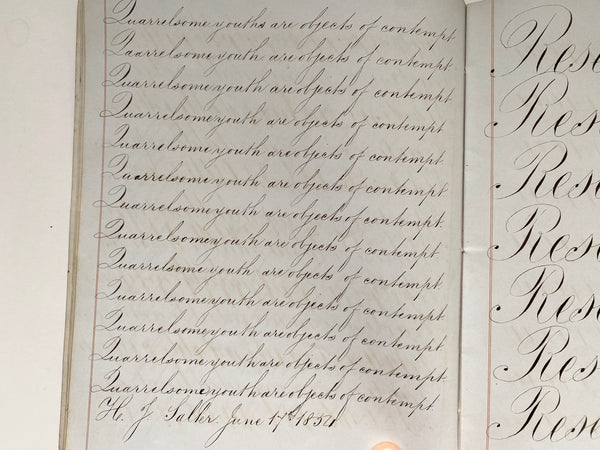 Quarrelsome youths are objects of contempt.
Quarrelsome youth are objects of contempt.
Quarrelsome youth are objects of contempt.
Quarrelsome youth are objects of contempt.
Quarrelsome youth are objects of contempt.
Quarrelsome youth are objects of contempt.
Quarrelsome youth are objects of contempt.
Quarrelsome youth are objects of contempt.
Quarrelsome youth are objects of contempt.
Quarrelsome youth are objects of contempt.
Quarrelsome youth are objects of contempt.
Quarrelsome youth are objects of contempt.
Quarrelsome youth are objects of contempt.
H. J. June 17th 1854
Rese
Rese
Rese
Rese
Rese
Rese
Rese